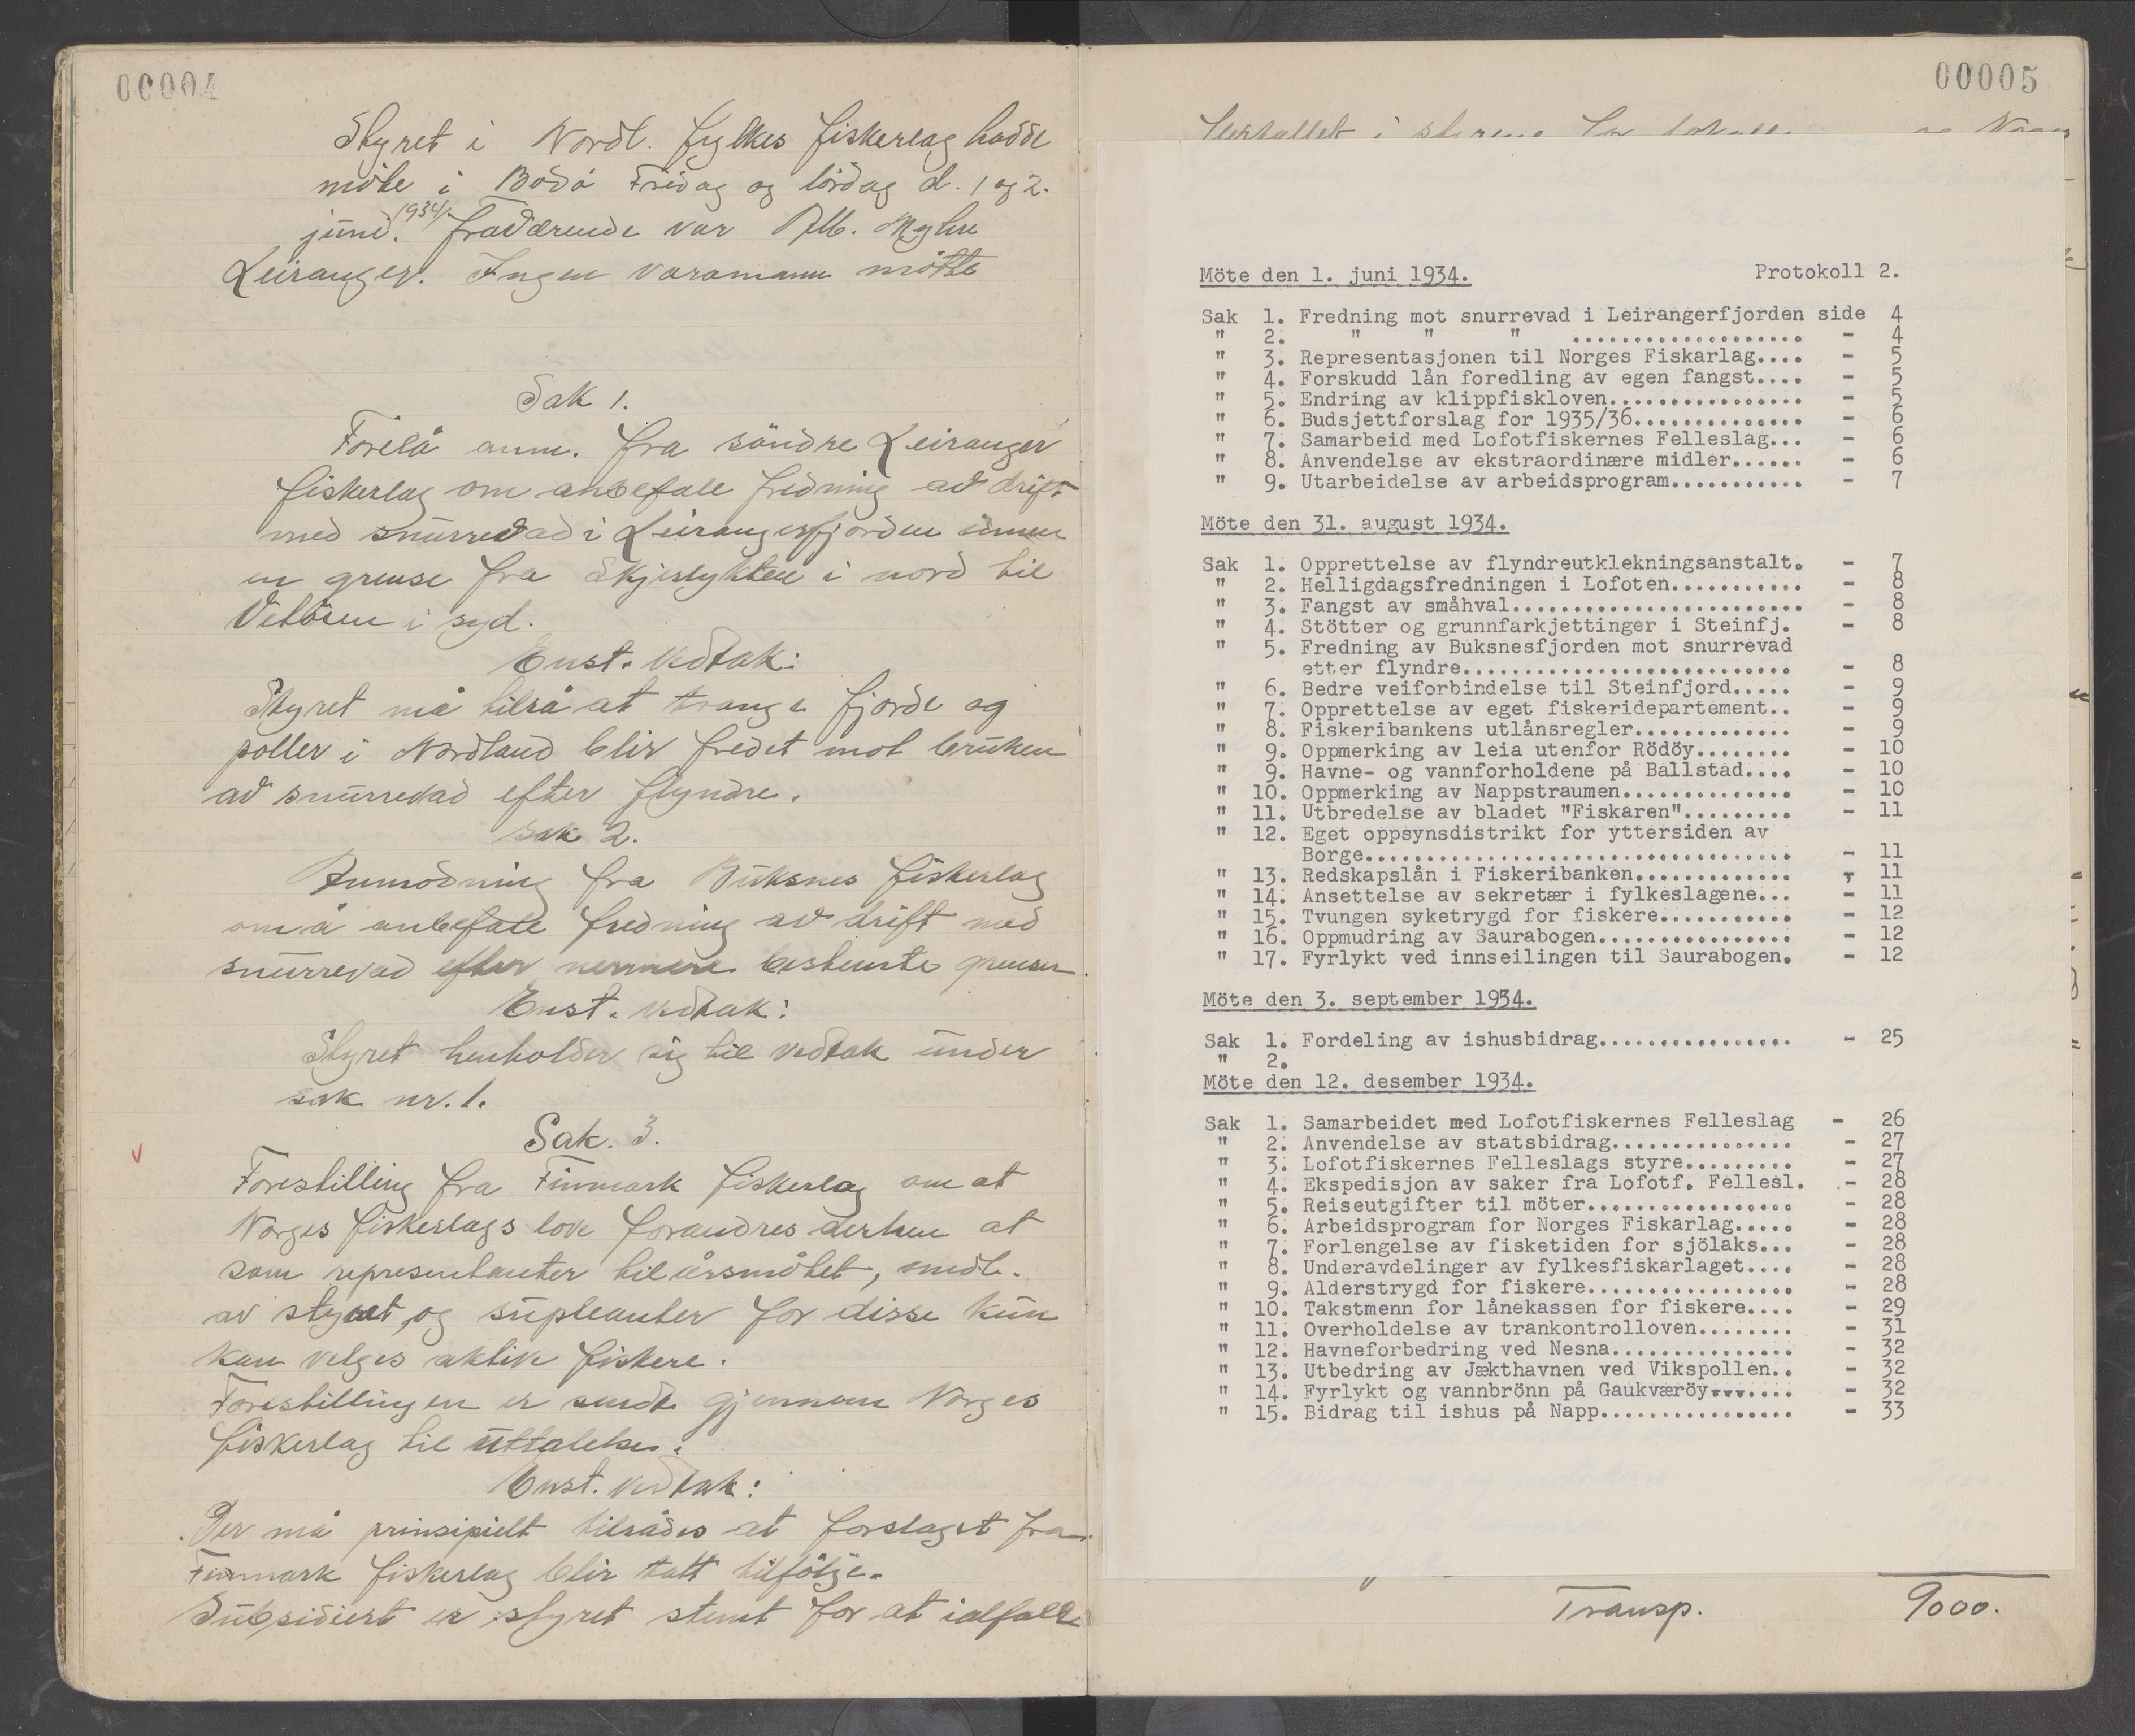 00004
Styret i Nordl. fylkes fiskerlag hadde
möte i Bodö Fredag og lördag d. 1 og 2.
juni. 1934. fraværende var Myhre
Leiranger. Ingen varamann mötte
Sak 1.
Forelå anm. fra söndre Leiranger
fiskerlag om anbefale fredning av drift
med snurrevad i Leirangerfjorden innen
en grense fra i nord til
i syd.
Enst. vedtak:
Styret må tilrå at trange fjorde og
poller i Nordland blir fredet mot bruken
av snurrevad efter flyndre.
Sak 2.
Anmodning fra Buksnes fiskerlag
om å anbefale fredning av drift med
snurrevad efter nermere bestemte grenser.
Enst. vedtak:
Styret henholder sig til vedtak under
sak nr. 1.
Sak. 3.
Forestilling fra Finmark fiskerlag om at
Norges fiskerlags love forandres derhen at
som representanter til årsmötet, medl.
av styret, og supleanter for disse kun
kan velges aktive fiskere.
Forestillingen er sendt gjennem Norges
fiskerlag til uttalelse.
Enst. vedtak:
Der må prinsipielt tilrådes at forslaget fra
Finmark fiskerlag blir tatt tilfölge.
Subsidiert er styret stemt for at ialfall
00005
Möte den 1. juni 1934. Protokoll 2.
Sak 1. Fredning mot snurrevad i Leirangerfjorden side 4
" 2. " " " ................... - 4
" 3. Representasjonen til Norges Fiskarlag.... - 5
" 4. Forskudd lån foredling av egen fangst.... - 5
" 5. Endring av klippfiskloven................ - 5
" 6. Budsjettforslag for 1935/36.............. - 6
" 7. Samarbeid med Lofotfiskernes Felleslag... - 6
" 8. Anvendelse av ekstraordinære midler...... - 6
" 9. Utarbeidelse av arbeidsprogram........... - 7
Möte den 31. august 1934.
Sak 1. Opprettelse av flyndreutklekningsanstalt. - 7
" 2. Helligdagsfredningen i Lofoten........... - 8
" 3. Fangst av småhval........................ - 8
" 4. Stötter og grunnfarkjettinger i Steinfj. - 8
" 5. Fredning av Buksnesfjorden mot snurrevad
etter flyndre........................... - 8
" 6. Bedre veiforbindelse til Steinfjord..... - 9
" 7. Opprettelse av eget fiskeridepartement.. - 9
" 8. Fiskeribankens utlånsregler............. - 9
" 9. Oppmerking av leia utenfor Rödöy........ - 10
" 9. Havne- og vannforholdene på Ballstad.... - 10
" 10. Oppmerking av Nappstraumen.............. - 10
" 11. Utbredelse av bladet "Fiskaren"......... - 11
" 12. Eget oppsynsdistrikt for yttersiden av
Borge................................... - 11
" 13. Redskapslån i Fiskeribanken............. - 11
" 14. Ansettelse av sekretær i fylkeslagene... - 11
" 15. Tvungen syketrygd for fiskere........... - 12
" 16. Oppmudring av Saurabogen................ - 12
" 17. Fyrlykt ved innseilingen til Saurabogen. - 12
Möte den 3. september 1934.
Sak 1. Fordeling av ishusbidrag................ - 25
" 2.
Möte den 12. desember 1934.
Sak 1. Samarbeidet med Lofotfiskernes Felleslag - 26
" 2. Anvendelse av statsbidrag............... - 27
" 3. Lofotfiskernes Felleslags styre......... - 27
" 4. Ekspedisjon av saker fra Lofotf. Fellesl. - 28
" 5. Reiseutgifter til möter................. - 28
" 6. Arbeidsprogram for Norges Fiskarlag..... - 28
" 7. Forlengelse av fisketiden for sjölaks... - 28
" 8. Underavdelinger av fylkesfiskarlaget.... - 28
" 9. Alderstrygd for fiskere................. - 28
" 10. Takstmenn for lånekassen for fiskere.... - 29
" 11. Overholdelse av trankontrolloven........ - 31
" 12. Havneforbedring ved Nesna............... - 32
" 13. Utbedring av Jækthavnen ved Vikspollen.. - 32
" 14. Fyrlykt og vannbrönn på Gaukværöy....... - 32
" 15. Bidrag til ishus på Napp................ - 33
Transp. 9000.